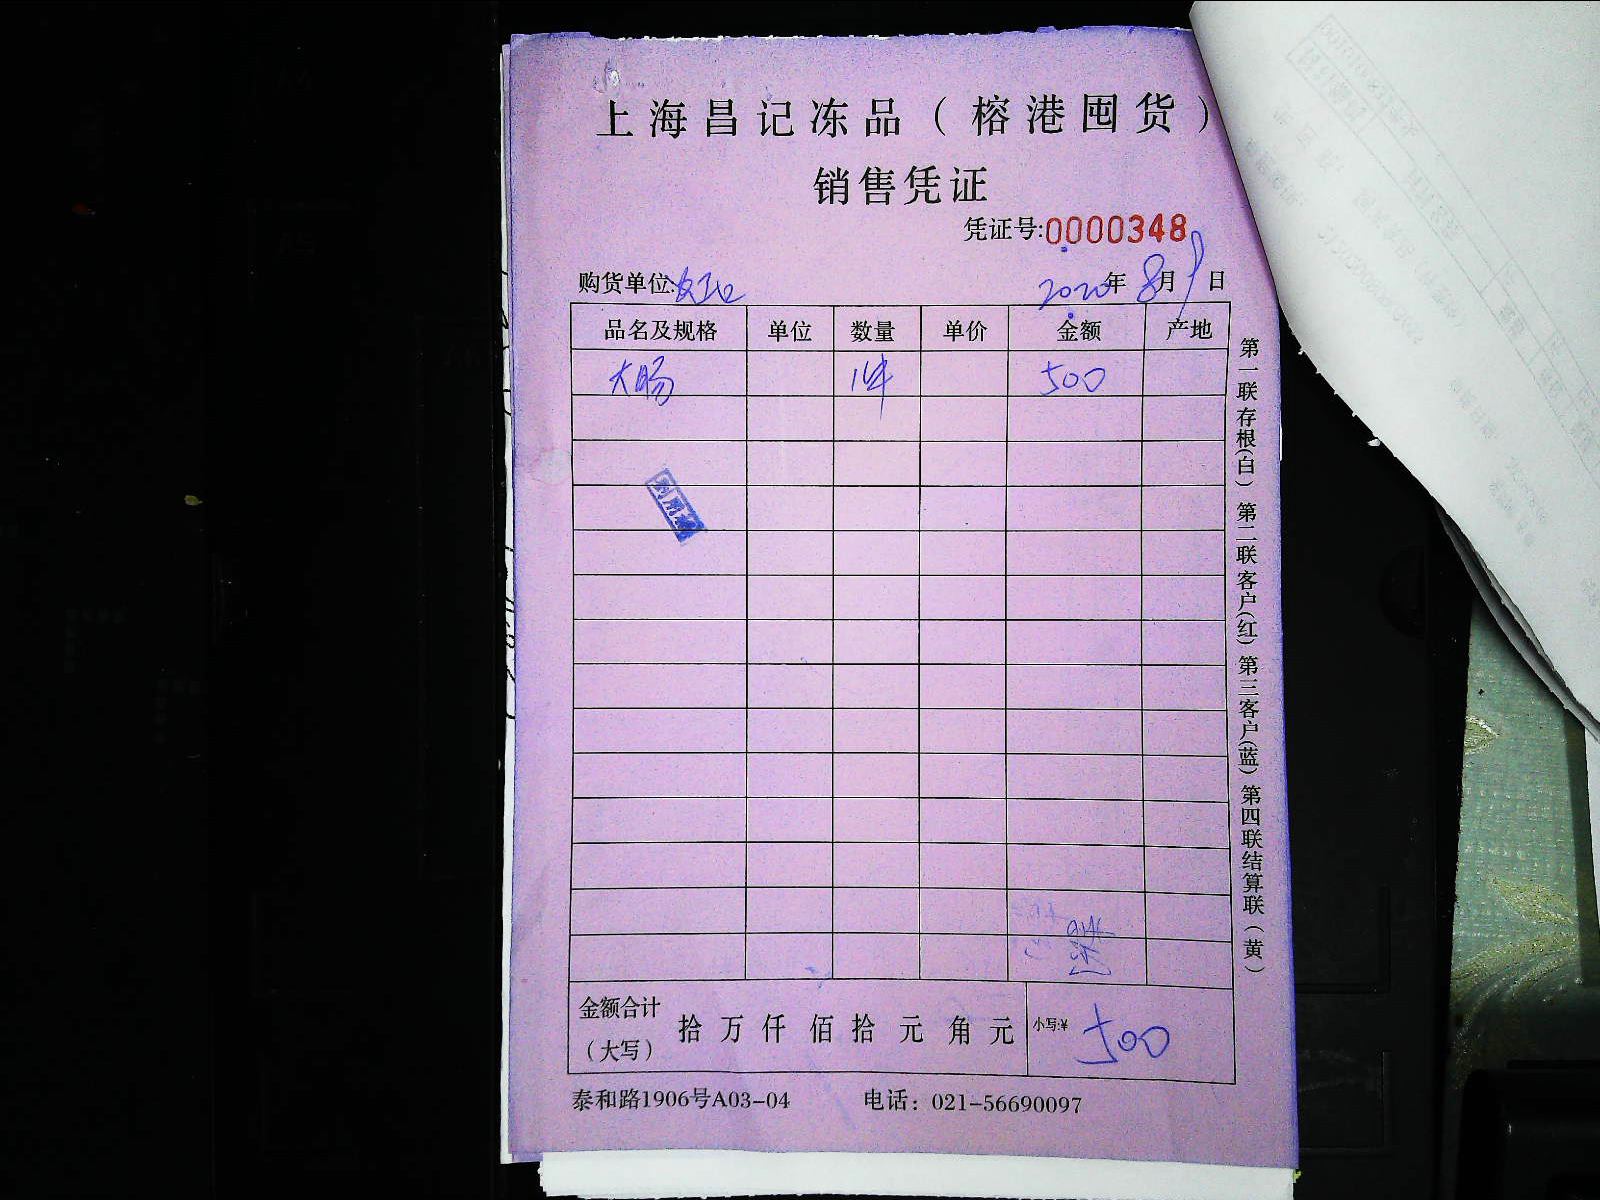 上海昌记冻品（榕港囤货）
销售凭证
凭证号:0000348
购货单位:
2020年8月9日
品名及规格 单位 数量 单价 金额 产地
大肠 1件 500
金额合计（大写） 拾 万 仟 佰 拾 元 角 元 小写:¥ 500
泰和路1906号A03-04 电话：021-56690097
第一联存根(白) 第二联客户(红) 第三客户(蓝) 第四联结算联(黄)